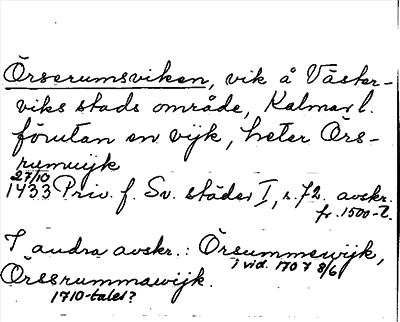 Örserumsviken, vik å Väster-
viks stads område, Kalmar l.
förutan en vijk, heter Örs-
rumvijk
27/10
1433 Priv. f. Sv. städer I, s. 72. avskr.
fr. 1500-t.
I andra avskr.: Örsummewijk,
i vid. 1707 8/6
Örssrummawijk.
1710-talet?